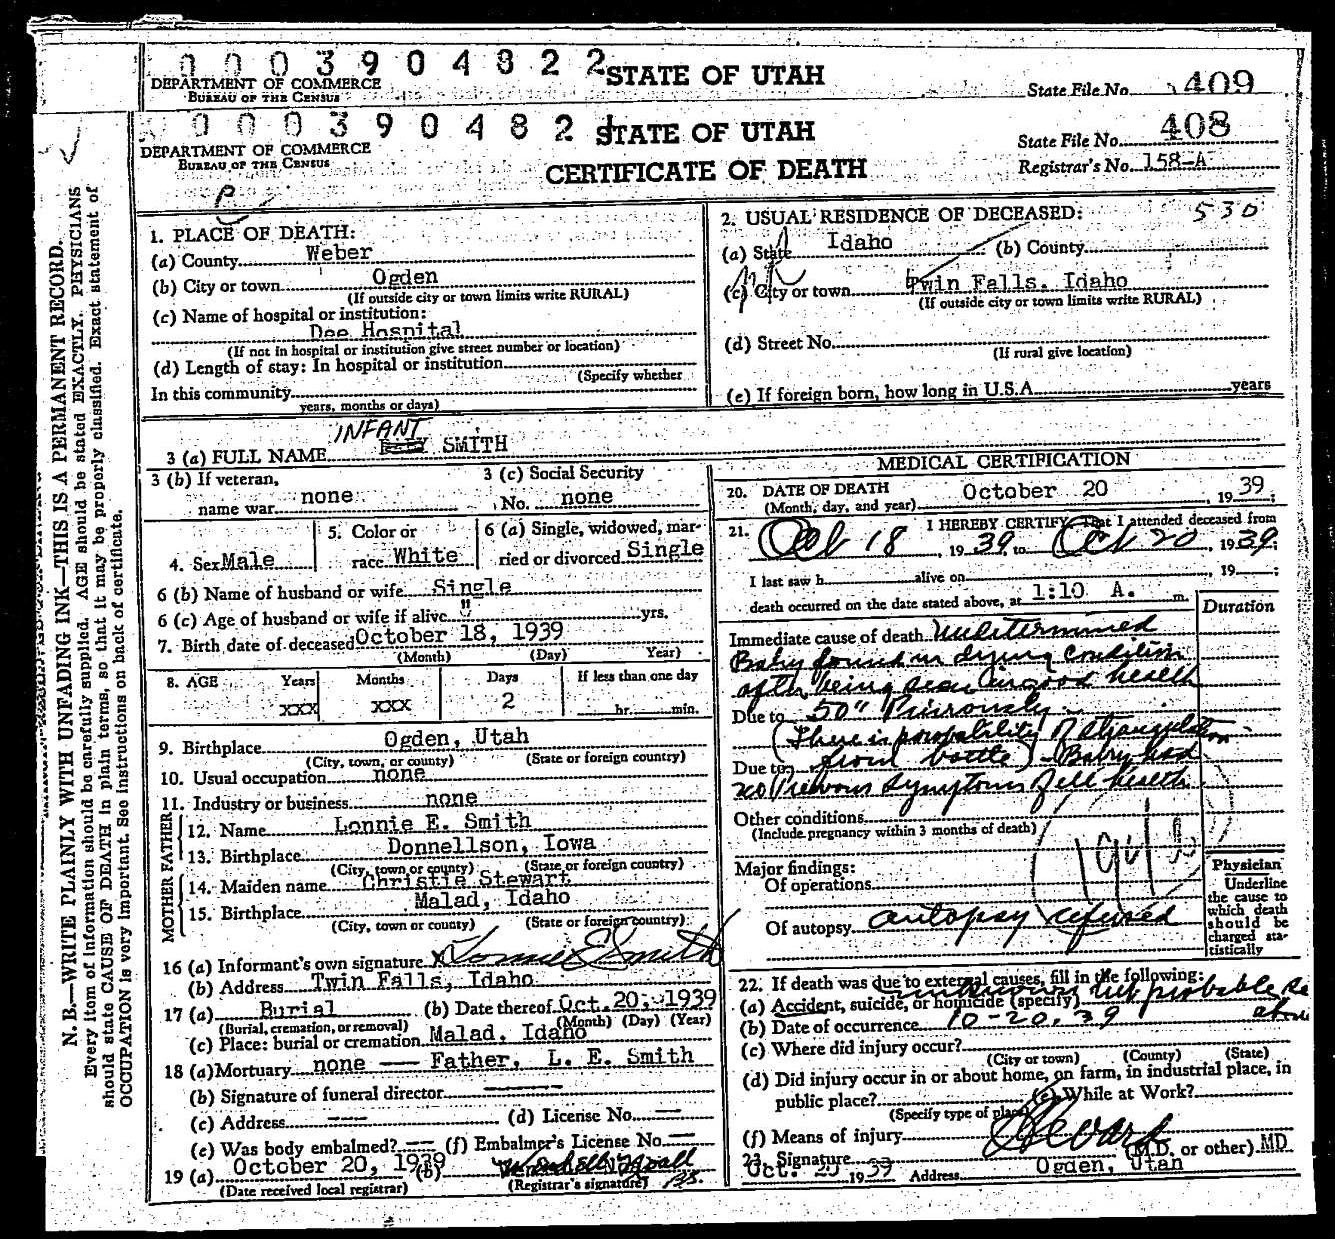 0003904822 STATE OF UTAH
DEPARTMENT OF COMMERCE
BUREAU OF THE CENSUS
State File No. 409
000390482 STATE OF UTAH
State File No. 408
DEPARTMENT OF COMMERCE
BUREAU OF THE CENSUS
CERTIFICATE OF DEATH
Registrar's No. 158-A
N. B.—WRITE PLAINLY WITH UNFADING INK—THIS IS A PERMANENT RECORD.
Every item of information should be carefully supplied. AGE should be stated EXACTLY. PHYSICIANS
should state CAUSE OF DEATH in plain terms, so that it may be properly classified. Exact statement of
OCCUPATION is very important. See instructions on back of certificate.
1. PLACE OF DEATH:
(a) County Weber
(b) City or town Ogden
(If outside city or town limits write RURAL)
(c) Name of hospital or institution:
Dee Hospital
(If not in hospital or institution give street number or location)
(d) Length of stay: In hospital or institution
(Specify whether
In this community
years, months or days)
2. USUAL RESIDENCE OF DECEASED: 530
(a) State Idaho (b) County
(c) City or town Twin Falls, Idaho
(If outside city or town limits write RURAL)
(d) Street No.
(If rural give location)
(e) If foreign born, how long in U.S.A. years
INFANT
3 (a) FULL NAME SMITH
3 (b) If veteran,
name war none
3 (c) Social Security
No. none
4. Sex Male
5. Color or
race White
6 (a) Single, widowed, mar-
ried or divorced Single
6 (b) Name of husband or wife Single
6 (c) Age of husband or wife if alive " yrs.
7. Birth date of deceased October 18, 1939
(Month) (Day) Year)
8. AGE Years Months Days If less than one day
xxx xxx 2 hr. min.
9. Birthplace Ogden, Utah
(City, town, or county) (State or foreign country)
10. Usual occupation none
11. Industry or business none
FATHER
12. Name Lonnie E. Smith
13. Birthplace Donnellson, Iowa
(City, town or county) (State or foreign country)
MOTHER
14. Maiden name Christie Stewart
15. Birthplace Malad, Idaho
(City, town or county) (State or foreign country)
16 (a) Informant's own signature x Lonnie E Smith
(b) Address Twin Falls, Idaho
17 (a) Burial (b) Date thereof Oct. 20, 1939
(Burial, cremation, or removal) (Month) (Day) (Year)
(c) Place: burial or cremation Malad, Idaho
18 (a) Mortuary none — Father, L. E. Smith
(b) Signature of funeral director
(c) Address --- (d) License No. —
(e) Was body embalmed? -- (f) Embalmer's License No. —
19 (a) October 20, 1939 (b)
(Date received local registrar) (Registrar's signature)
MEDICAL CERTIFICATION
20. DATE OF DEATH October 20, 1939;
(Month, day, and year)
21. I HEREBY CERTIFY, That I attended deceased from
Oct 18, 1939 to Oct 20, 1939;
I last saw h alive on , 19 ;
death occurred on the date stated above, at 1:10 A. m.
Duration
Immediate cause of death Undetermined
Baby found in dying condition
after being seen in good health
Due to 50" Previously.
(There is probability of strangulation
Due to from bottle) - Baby had
no previous symptoms of ill health
Other conditions
(Include pregnancy within 3 months of death)
Major findings:
Of operations
Of autopsy autopsy refused
Physician
Underline
the cause to
which death
should be
charged sta-
tistically
22. If death was due to external causes, fill in the following:
(a) Accident, suicide, or homicide (specify) unknown but probable se
above
(b) Date of occurrence 10-20.39
(c) Where did injury occur?
(City or town) (County) (State)
(d) Did injury occur in or about home, on farm, in industrial place, in
public place? (e) While at Work?
(Specify type of place)
(f) Means of injury
23. Signature (M.D. or other) MD
Oct. 1939 Address Ogden, Utah